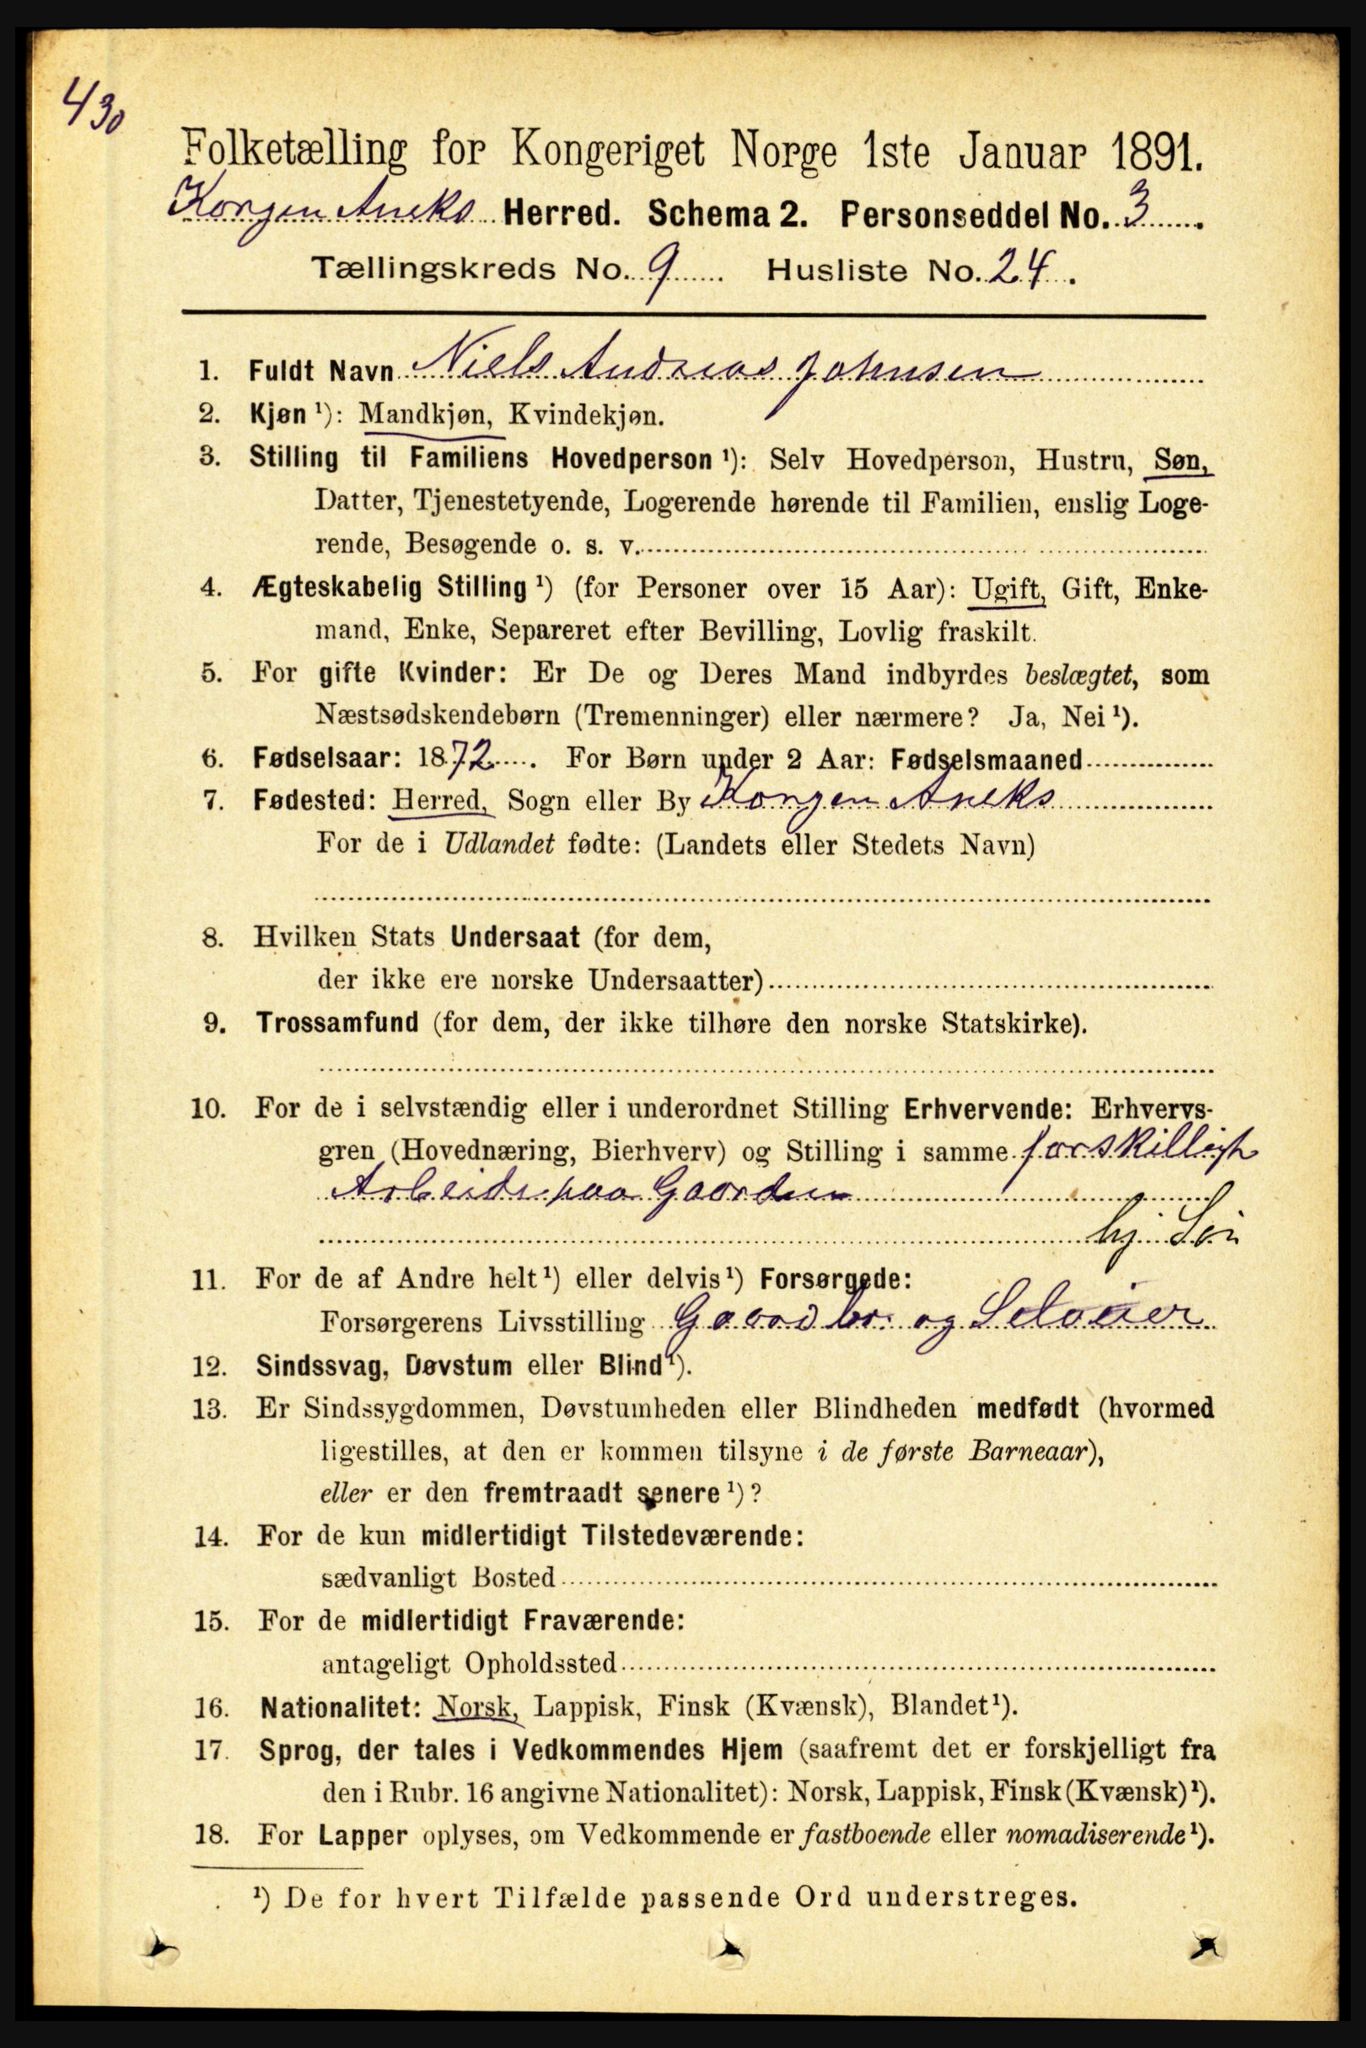 430
Folketælling for Kongeriget Norge 1ste Januar 1891.
Korgen Aneks Herred. Schema 2. Personseddel No. 3.
Tællingskreds No. 9 Husliste No. 24.
1. Fuldt Navn Niels Andreas Johnsen
2. Kjøn ¹): Mandkjøn, Kvindekjøn.
3. Stilling til Familiens Hovedperson ¹): Selv Hovedperson, Hustru, Søn,
Datter, Tjenestetyende, Logerende hørende til Familien, enslig Loge-
rende, Besøgende o. s. v.
4. Ægteskabelig Stilling ¹) (for Personer over 15 Aar): Ugift, Gift, Enke-
mand, Enke, Separeret efter Bevilling, Lovlig fraskilt.
5. For gifte Kvinder: Er De og Deres Mand indbyrdes beslægtet, som
Næstsødskendebørn (Tremenninger) eller nærmere? Ja, Nei ¹).
6. Fødselsaar: 1872. For Børn under 2 Aar: Fødselsmaaned
7. Fødested: Herred, Sogn eller By Korgen Aneks
For de i Udlandet fødte: (Landets eller Stedets Navn)
8. Hvilken Stats Undersaat (for dem,
der ikke ere norske Undersaatter)
9. Trossamfund (for dem, der ikke tilhøre den norske Statskirke).
10. For de i selvstændig eller i underordnet Stilling Erhvervende: Erhvervs-
gren (Hovednæring, Bierhverv) og Stilling i samme forskilligt
Arbeide paa Gaarden
hj. Søn
11. For de af Andre helt ¹) eller delvis ¹) Forsørgede:
Forsørgerens Livsstilling Gaardbr. og Selveier
12. Sindssvag, Døvstum eller Blind ¹).
13. Er Sindssygdommen, Døvstumheden eller Blindheden medfødt (hvormed
ligestilles, at den er kommen tilsyne i de første Barneaar),
eller er den fremtraadt senere ¹)?
14. For de kun midlertidigt Tilstedeværende:
sædvanligt Bosted
15. For de midlertidigt Fraværende:
antageligt Opholdssted
16. Nationalitet: Norsk, Lappisk, Finsk (Kvænsk), Blandet ¹).
17. Sprog, der tales i Vedkommendes Hjem (saafremt det er forskjelligt fra
den i Rubr. 16 angivne Nationalitet): Norsk, Lappisk, Finsk (Kvænsk) ¹).
18. For Lapper oplyses, om Vedkommende er fastboende eller nomadiserende ¹).
¹) De for hvert Tilfælde passende Ord understreges.